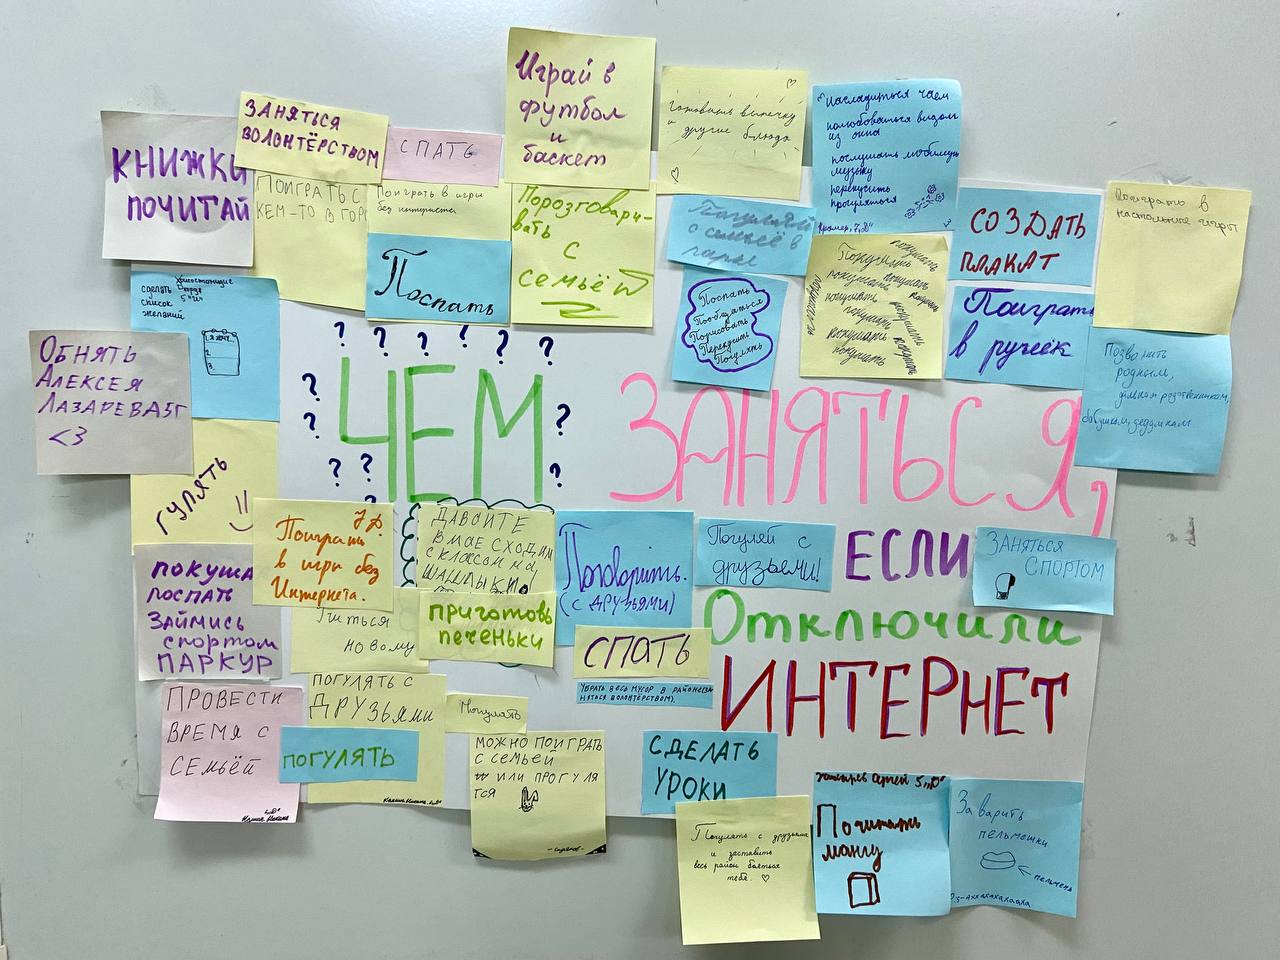 Играй в
футбол
и
баскет
Готовить выпечку
и другие блюда
Насладиться чаем
полюбоваться видом
из окна
послушать любимую
музыку
перекусить
прогуляться
ЗАНЯТЬСЯ
ВОЛОНТЁРСТВОМ
СПАТЬ
КНИЖКИ
ПОЧИТАЙ
ПОИГРАТЬ С
КЕМ-ТО В ГОРО
Поиграть в игры
без интернета
Поспать
Порозговари-
вать
с
семьёй
Погуляй
с семьёй в
парке
СОЗДАТЬ
ПЛАКАТ
Поиграть в
настольные игры
Поспать
Пообщаться
Порисовать
Перекусить
Погулять
Покушать
покушать
покушать
покушать
покушать
покушать
покушать
покушать
Поиграть
в ручеёк
Позвонить
родным,
дальним родственникам,
бабушкам, дедушкам
сделать
список
желаний
5 "и"
1. Я хочу...
2.
3.
ОБНЯТЬ
АЛЕКСЕЯ
ЛАЗАРЕВА 5Г
<3
ГУЛЯТЬ
? ? ? ? ? ?
ЧЕМ
ЗАНЯТЬСЯ,
ЕСЛИ
Отключили
ИНТЕРНЕТ
Поиграть
в игры без
Интернета.
ДАВАЙТЕ
В МАЕ СХОДИМ
С КЛАССОМ НА
ШАШЛЫКИ!
Поговорить.
(с друзьями)
Погуляй с
друзьями!
ЗАНЯТЬСЯ
СПОРТОМ
ПОКУШАЙ
ПОСПАТЬ
ЗАЙМИСЬ
СПОРТОМ
ПАРКУР
новому
ПРИГОТОВЬ
ПЕЧЕНЬКИ
СПАТЬ
УБРАТЬ ВЕСЬ МУСОР В РАЙОНЕ(ЗА
НЯТЬСЯ ВОЛОНТЁРСТВОМ).
ПРОВЕСТИ
ВРЕМЯ С
СЕМЬЁЙ
ПОГУЛЯТЬ С
ДРУЗЬЯМИ
ПОГУЛЯТЬ
Погулять
МОЖНО ПОИГРАТЬ
С СЕМЬЕЙ
ИЛИ ПРОГУЛЯ
ТСЯ
СДЕЛАТЬ
УРОКИ
Погулять с друзьями
и заставить
весь район бояться
тебя.
Сергей 5 "Д"
Почитать
мангу
Заварить
пельмешки
пельмень